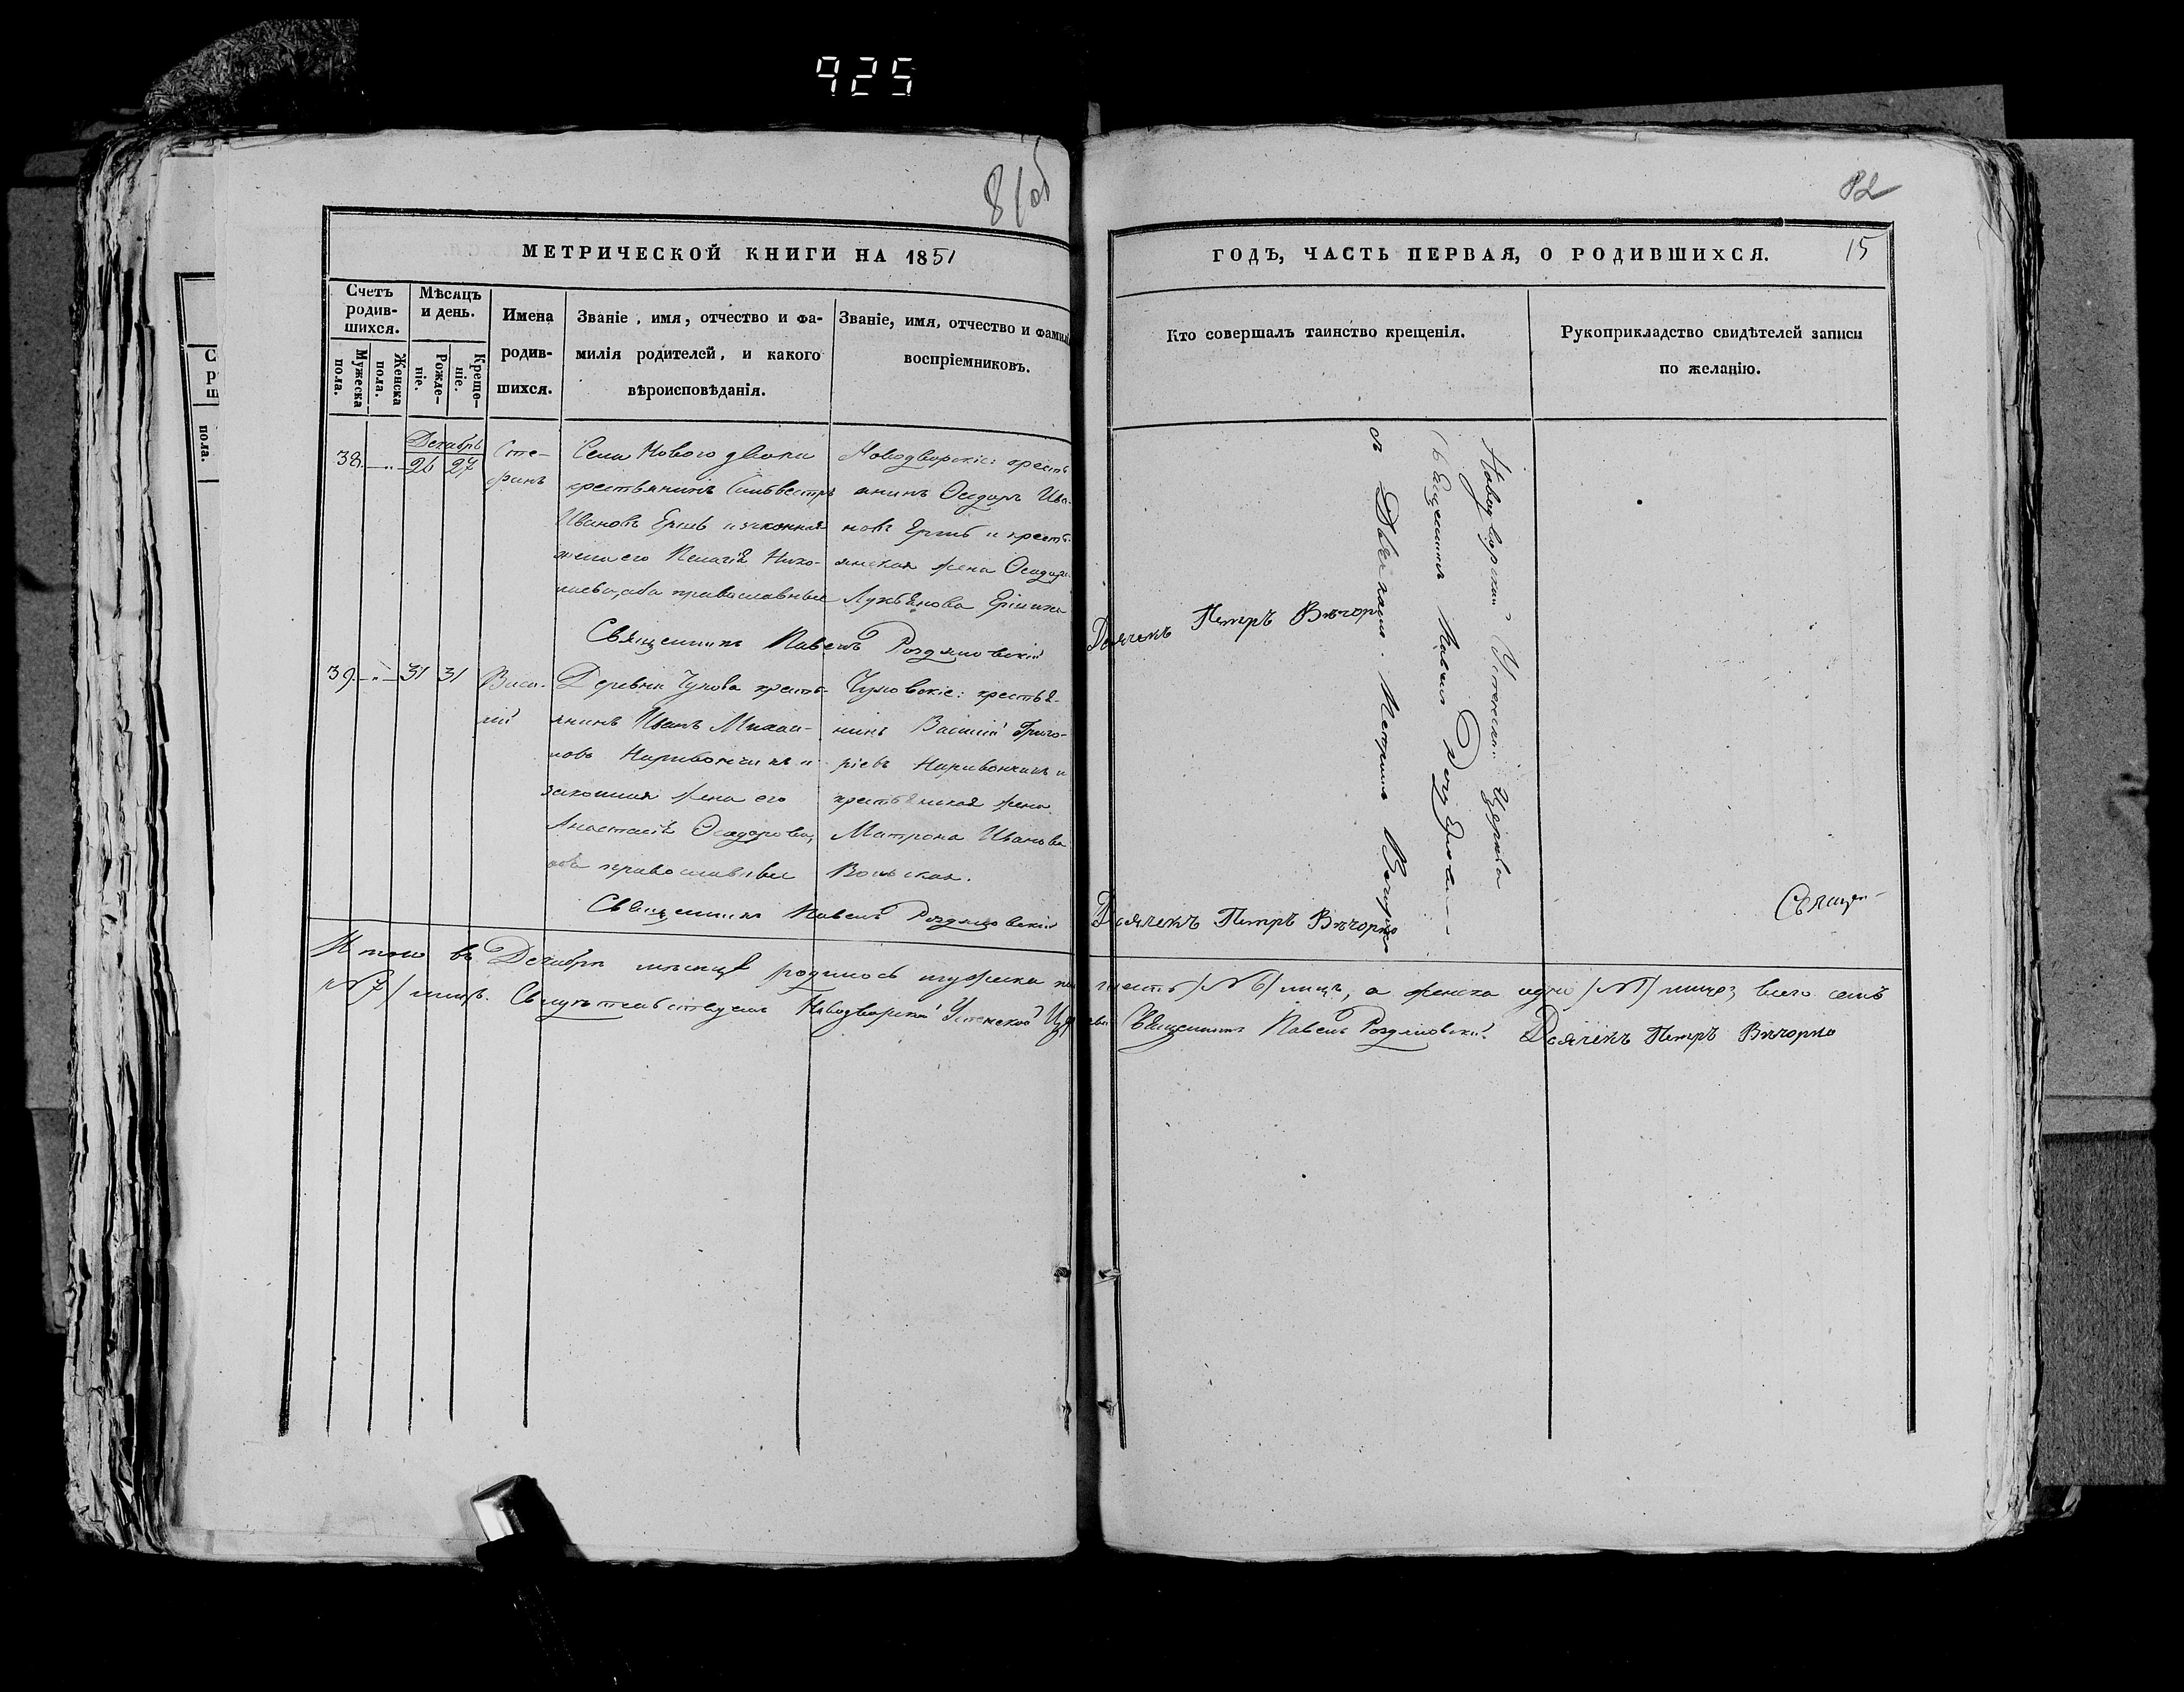 925
81об
82
МЕТРИЧЕСКОЙ КНИГИ НА 1851
ГОДЪ, ЧАСТЬ ПЕРВАЯ, О РОДИВШИХСЯ.
15
Счетъ родив-шихся.
Мужеска пола.
Женска пола.
Мѣсяцъ и день.
Рожде-ніе.
Креще-ніе.
Имена
родив-
шихся.
Званіе, имя, отчество и фа-
милія родителей, и какого
вѣроисповѣданія.
Званіе, имя, отчество и фамил
воспріемниковъ.
Кто совершалъ таинство крещенія.
Рукоприкладство свидѣтелей записи
по желанію.
Декабрь
38. 26 27
Сте-
фанъ
Села Нового двора
крестьянинъ Сильвестръ
Ивановъ Ершъ и законная
жена его Пелагія Нико-
лаева, оба православные
Новодворскіе: кресть
янинъ Ѳедоръ Ива-
новъ Ершъ и кресть-
янская жена Ѳедора
Лукьянова
Священникъ Павелъ
Дьячекъ Петръ Вѣчорко
39. 31 31
Васи-
лій
Деревни кресть-
янинъ Иванъ Михаи-
ловъ и
законная жена его
Анастасія Ѳедорова,
оба православные
крестья-
нинъ Василій Григо-
ріевъ и
крестьянская жена
Матрона Иванова
Священникъ Павелъ
Дьячекъ Петръ Вѣчорко
Новодворской Успенской Церкви
Священникъ Павелъ
съ Дьячкомъ Петромъ
Священ-
Итого въ Декабрѣ мѣсяцѣ родилось мужеска по шесть /№ 6/ лицъ, а женска одно /№ 1/ лице, всего семь
/№ 7/ лицъ. Свидѣтельствуемъ Новодворской Успенской Церкви Священникъ Павелъ Дьячекъ Петръ Вѣчорко
С
Р
Ш
пола.